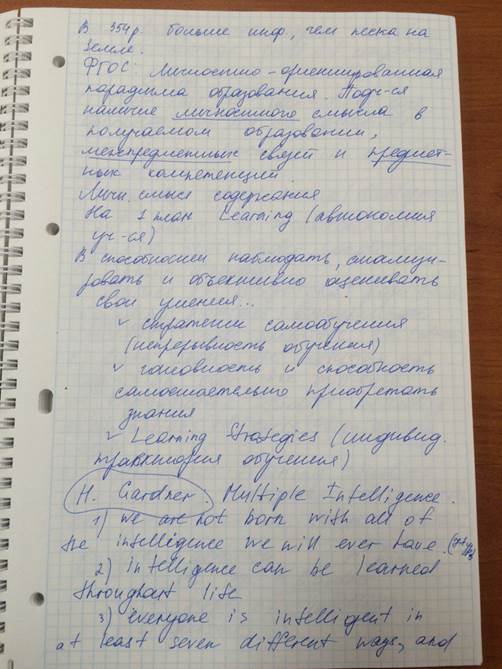 В 354р. больше инф, чем песка на
Земле.
ФГОС: Личностно-ориентированная
парадигма образования. Подр-ся
наличие личностного смысла в
получаемом образовании,
межпредметных связей и предмет-
ных компетенций.
Личн. смысл содержания
На 1 план Learning (автономия
уч-ся)
В способности наблюдать, анализи-
ровать и объективно оценивать
свои умения...
✓ стратегии самообучения
(непрерывность обучения)
✓ готовность и способность
самостоятельно приобретать
знания
✓ Learning Strategies (индивид.
траектория обучения)
H. Gardner. Multiple Intelligence.
1) we are not born with all of
the intelligence we will ever have.
2) intelligence can be learned
throughout life
3) everyone is intelligent in
at least seven different ways, and